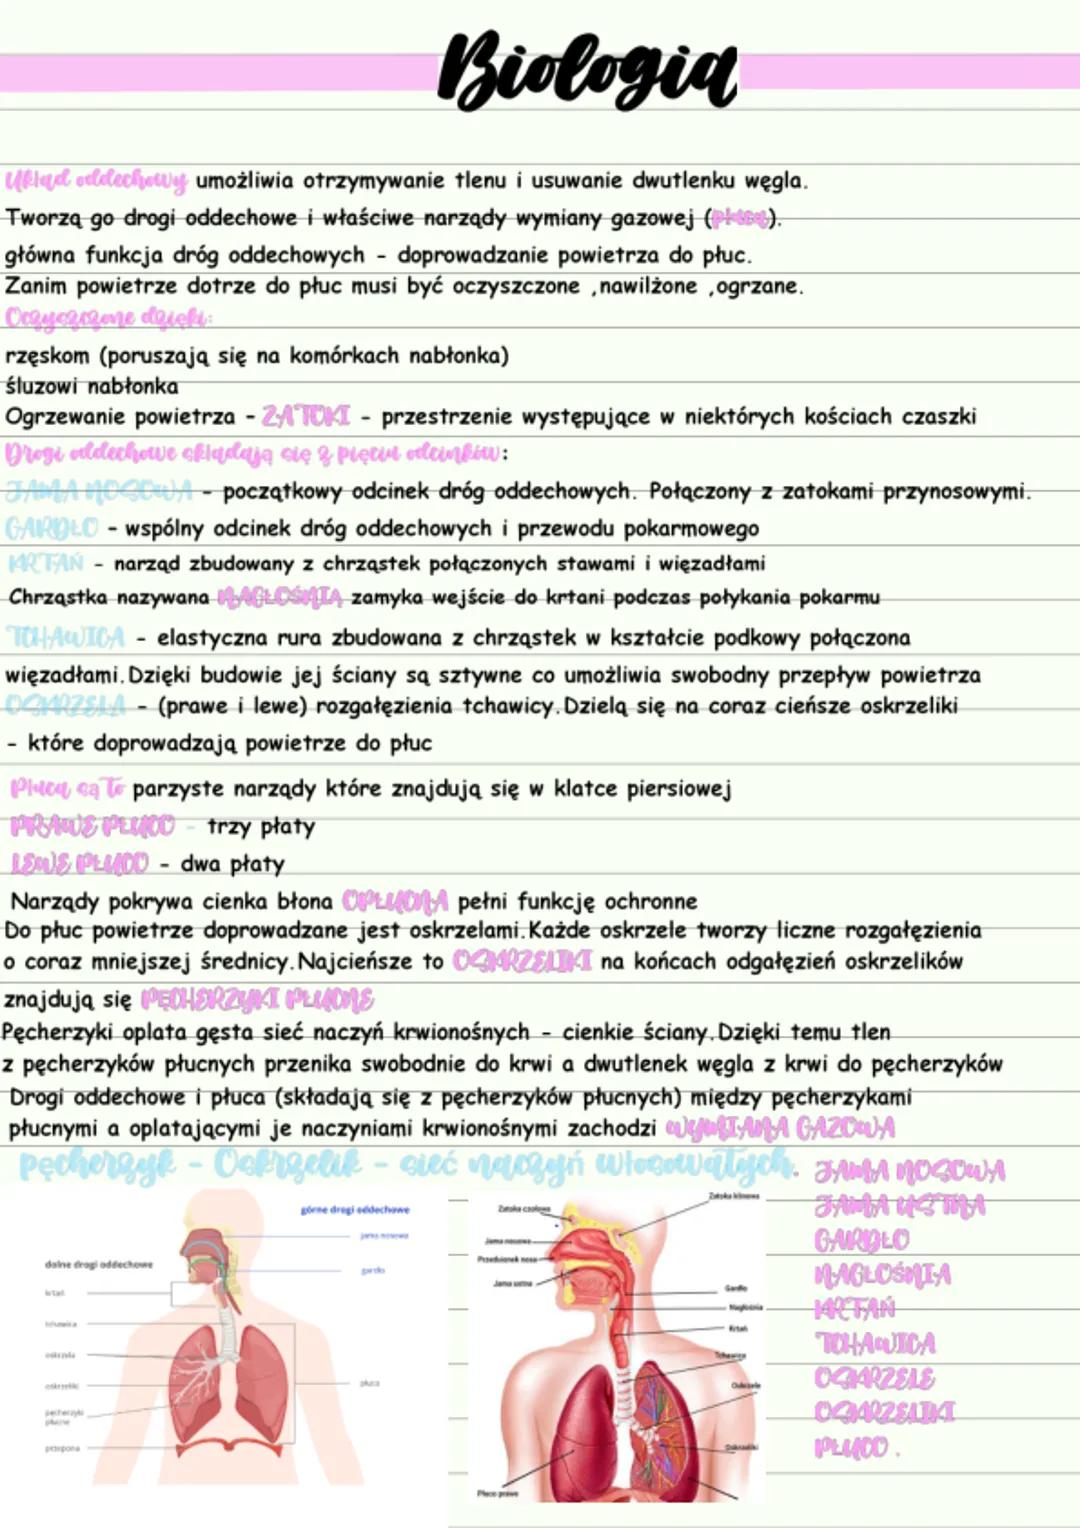 Biologia
Układ oddechowy umożliwia otrzymywanie tlenu i usuwanie dwutlenku węgla.
Tworzą go drogi oddechowe i właściwe narządy wymiany gazowej (płuca).
główna funkcja dróg oddechowych - doprowadzanie powietrza do płuc.
Zanim powietrze dotrze do płuc musi być oczyszczone ,nawilżone ,ogrzane.
Oczyszczone dzięki:
rzęskom (poruszają się na komórkach nabłonka)
śluzowi nabłonka
Ogrzewanie powietrza - ZATOKI - przestrzenie występujące w niektórych kościach czaszki
Drogi oddechowe składają się z pięciu odcinków:
JAMA NOSOWA - początkowy odcinek dróg oddechowych. Połączony z zatokami przynosowymi.
GARDŁO - wspólny odcinek dróg oddechowych i przewodu pokarmowego
KRTAŃ - narząd zbudowany z chrząstek połączonych stawami i więzadłami
Chrząstka nazywana NAGŁOŚNIĄ zamyka wejście do krtani podczas połykania pokarmu
TCHAWICA - elastyczna rura zbudowana z chrząstek w kształcie podkowy połączona
więzadłami.Dzięki budowie jej ściany są sztywne co umożliwia swobodny przepływ powietrza
OSKRZELA - (prawe i lewe) rozgałęzienia tchawicy.Dzielą się na coraz cieńsze oskrzeliki
- które doprowadzają powietrze do płuc
Płuca są to parzyste narządy które znajdują się w klatce piersiowej
PRAWE PŁUCO - trzy płaty
LEWE PŁUCO - dwa płaty
Narządy pokrywa cienka błona OPŁUCNA pełni funkcję ochronne
Do płuc powietrze doprowadzane jest oskrzelami.Każde oskrzele tworzy liczne rozgałęzienia
o coraz mniejszej średnicy.Najcieńsze to OSKRZELIKI na końcach odgałęzień oskrzelików
znajdują się PĘCHERZYKI PŁUCNE
Pęcherzyki oplata gęsta sieć naczyń krwionośnych - cienkie ściany.Dzięki temu tlen
z pęcherzyków płucnych przenika swobodnie do krwi a dwutlenek węgla z krwi do pęcherzyków
Drogi oddechowe i płuca (składają się z pęcherzyków płucnych) między pęcherzykami
płucnymi a oplatającymi je naczyniami krwionośnymi zachodzi WYMIANA GAZOWA
pęcherzyk - Oskrzelik - sieć naczyń włosowatych.
górne drogi oddechowe
jama nosowa
gardło
dolne drogi oddechowe
krtań
tchawica
oskrzela
oskrzeliki
pęcherzyki
płucne
przepona
płuca
Zatoka czołowa
Zatoka klinowa
Jama nosowa
Przedsionek nosa
Jama ustna
Gardło
Nagłośnia
Krtań
Tchawica
Oskrzele
Oskrzeliki
Płuco prawe
JAMA NOSOWA
JAMA USTNA
GARDŁO
NAGŁOŚNIA
KRTAŃ
TCHAWICA
OSKRZELE
OSKRZELIKI
PŁUCO .